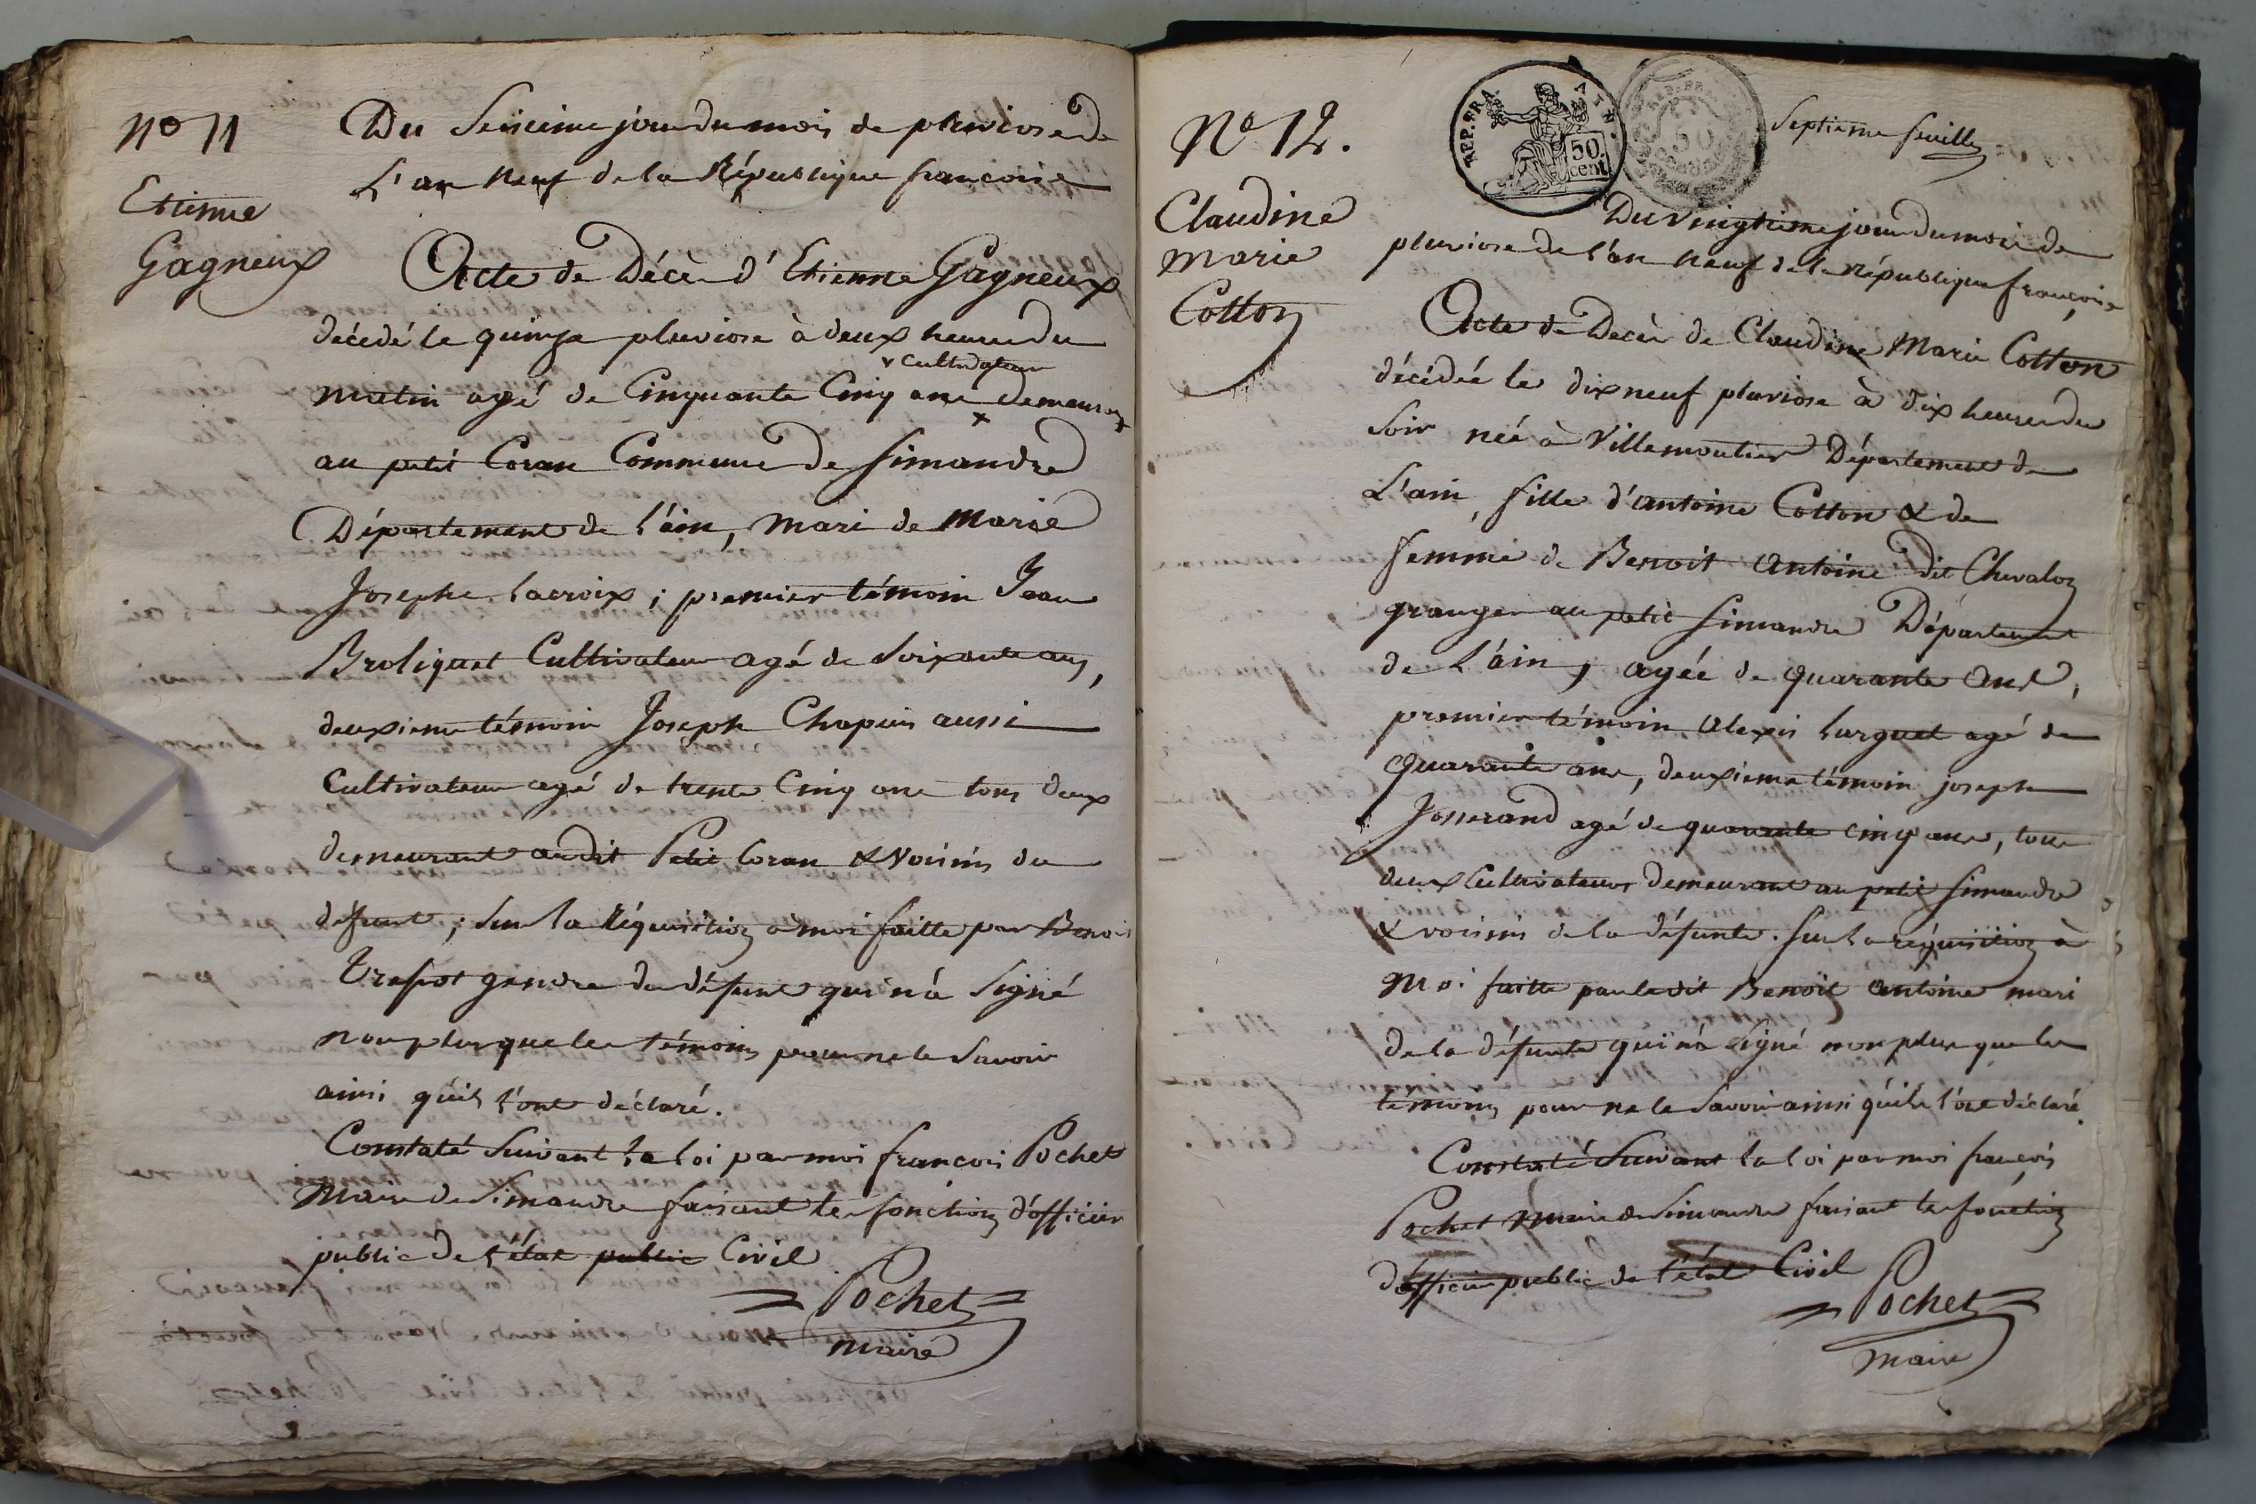 N° 11
Etienne
Gagneux
Du Seizieme jour du mois de pluviose de
L'an neuf de la République françoise
Acte de Décès d'Etienne Gagneux
décédé le quinze pluviose à deux heures du
x cultivateur
matin agé de Cinquante Cinq ans x demeurant
au petit Coran Commune de Simandre
Département de l'ain, mari de Marie
Josephe Lacroix ; premier témoin Jean
Broliquet Cultivateur agé de Soixante ans,
deuxieme témoin Joseph Chapuis aussi
Cultivateur agé de trente Cinq ans tous deux
demeurant audit Petit Coran & voisins du
défunt ; Sur la Réquisition à moi faitte par Benoit
gendre du défunt qui n'a Signé
non plus que les témoins pour ne le Savoir
ainsi qu'ils l'ont déclaré.
Constaté Suivant la loi par moi françois Pochet
Maire de Simandre faisant les fonctions d'officier
public de l'état public Civil
= Pochet =
maire
N° 12.
Claudine
Marie
Cotton
REP. FRA.
50
cent.
50
Septieme feuille
Du vingtieme jour du mois de
pluviose de l'an neuf de la république françoise
Acte de Decès de Claudine Marie Cotton
décédée le dix neuf pluviose à dix heures du
Soir née à Villemoutier Département de
L'ain, fille d'antoine Cotton & de
femme de Benoit Antoine dit Chevalon
granger au petit Simandre Département
de l'ain, agée de quarante ans,
premier témoin Alexis Lurquet agé de
quarante ans, deuxieme témoin joseph
Josserand agé de quarante cinq ans, tous
deux Cultivateurs demeurant au petit Simandre
& voisins de la défunte. Sur la réquisition à
moi faitte par ledit Benoit Antoine mari
de la défunte qui n'a Signé non plus que les
témoins pour ne le Savoir ainsi qu'ils l'ont déclaré
Constaté Suivant la loi par moi françois
Pochet Maire de Simandre faisant les fonctions
d'officier public de l'état Civil
= Pochet =
maire